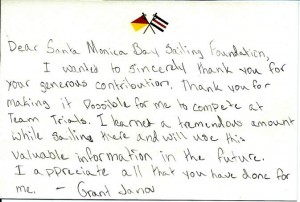 Dear Santa Monica Bay Sailing Foundation,
I wanted to sincerely thank you for
your generous contribution. Thank you for
making it possible for me to compete at
Team Trials. I learned a tremendous amount
while sailing there and will use this
valuable information in the future.
I appreciate all that you have done for
me. - Grant Janov